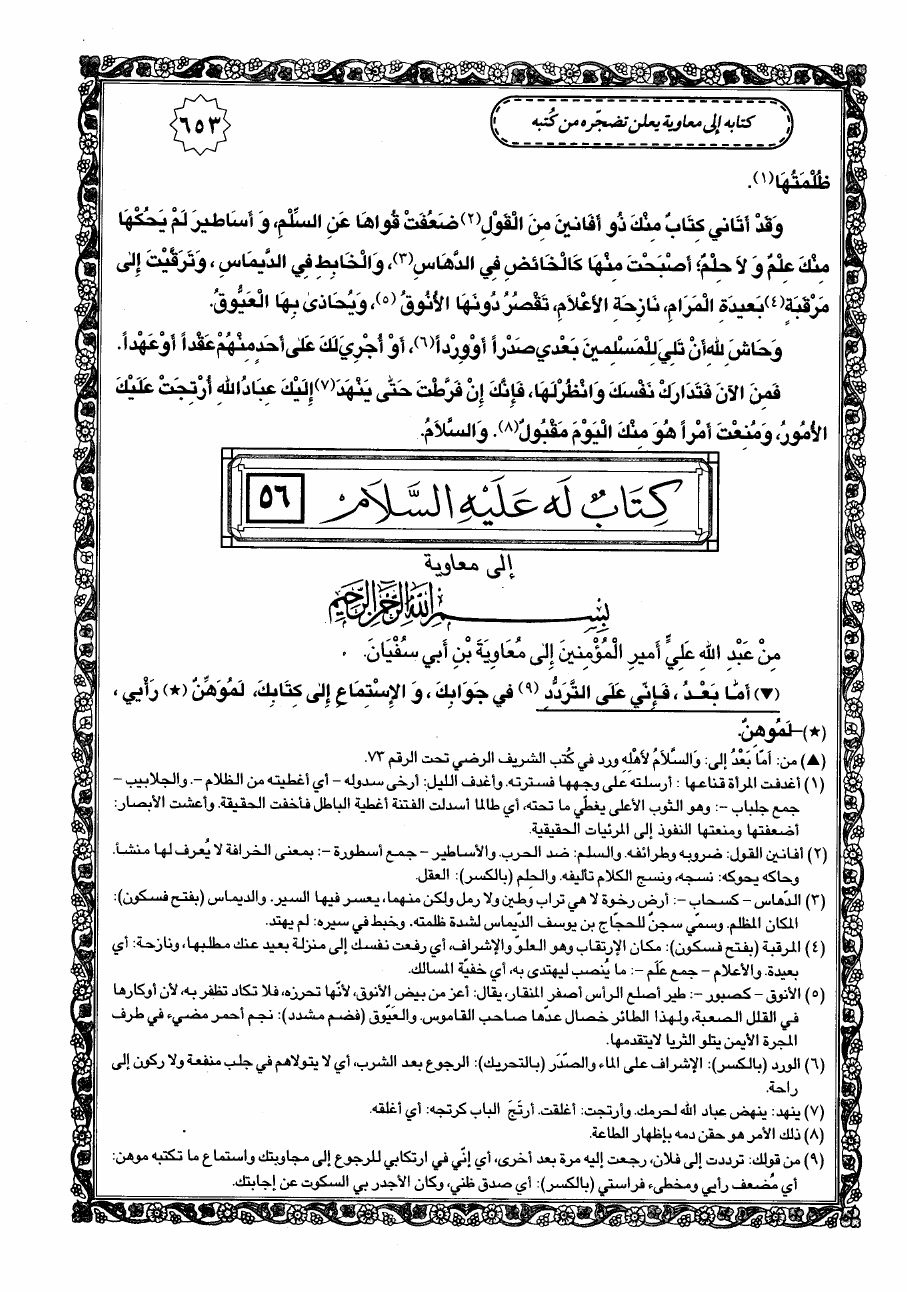 كتابه إلى معاوية يعلن تضجّره من كُتبه
٦٥٣
ظُلْمَتُهَا(١).
وَقَدْ أَتَاني كِتَابٌ مِنْكَ ذُو أَفَانينَ مِنَ الْقَوْلِ(٢) ضَعُفَتْ قُوَاهَا عَنِ السِّلْمِ، وَ أَسَاطيرَ لَمْ يَحُكْهَا
مِنْكَ عِلْمٌ وَ لاَ حِلْمٌ؛ أَصْبَحْتَ مِنْهَا كَالْخَائضِ فِي الدَّهَاسِ(٣)، وَالْخَابِطِ فِي الدِّيمَاسِ، وَتَرَقَّيْتَ إِلى
مَرْقَبَةٍ(٤) بَعيدَةِ الْمَرَامِ، نَازِحَةِ الأَعْلاَمِ، تَقْصُرُ دُونَهَا الأَنُوقُ(٥)، وَيُحَاذى بِهَا الْعَيُّوقُ.
وَحَاشَ لِلّهِ أَنْ تَلِيَ لِلْمُسْلِمينَ بَعْدي صَدْراً أَوْ وِرْداً(٦)، أَوْ أُجْرِيَ لَكَ عَلى أَحَدٍ مِنْهُمْ عَقْداً أَوْ عَهْداً.
فَمِنَ الآنَ فَتَدَارَكْ نَفْسَكَ وَانْظُرْ لَهَا، فَإِنَّكَ إِنْ فَرَّطْتَ حَتّى يَنْهَدَ(٧) إِلَيْكَ عِبَادُ اللهِ أُرْتِجَتْ عَلَيْكَ
الأُمُورُ، وَمُنِعْتَ أَمْراً هُوَ مِنْكَ الْيَوْمَ مَقْبُولٌ(٨). وَالسَّلاَمُ.
كِتَابٌ لَه عَلَيْهِ السَّلاَم ٥٦
إلى معاوية
بِسْمِ اللهِ الرَّحْمنِ الرَّحيمِ
مِنْ عَبْدِ اللهِ عَلِيٍّ أَميرِ الْمُؤْمِنينَ إِلى مُعَاوِيَةَ بْنِ أَبي سُفْيَانَ.
(▼) أَمَّا بَعْدُ، فَإِنّي عَلَى التَّرَدُّدِ (٩) في جَوَابِكَ، وَ الإِسْتِمَاعِ إِلى كِتَابِكَ، لَمُوَهِّنٌ (★) رَأْيي،
(★)-لَمُوهِنٌ.
(▲) من: أمّا بَعْدُ إلى: وَالسَّلاَمُ لأهْلِه ورد في كُتب الشريف الرضي تحت الرقم ٧٣.
(١) أغدفت المرأة قناعها : أرسلته على وجهها فسترته. وأغدف الليل: أرخى سدوله - أي أغطيته من الظلام -. والجلابيب -
جمع جلباب -: وهو الثوب الأعلى يغطّي ما تحته، أي طالما أسدلت الفتنة أغطية الباطل فأخفت الحقيقة. وأعشت الأبصار:
أضعفتها ومنعتها النفوذ إلى المرئيات الحقيقية.
(٢) أفانين القول: ضروبه وطرائفه. والسلم: ضد الحرب. والأساطير - جمع أسطورة -: بمعنى الخرافة لا يُعرف لها منشأ.
وحاكه يحوكه: نسجه، ونسج الكلام تأليفه. والحلم (بالكسر): العقل.
(٣) الدّهاس - كسحاب -: أرض رخوة لا هي تراب وطين ولا رمل ولكن منهما، يعسر فيها السير. والديماس (بفتح فسكون):
المكان المظلم. وسمّي سجنٌ للحجاج بن يوسف الدّيماس لشدة ظلمته. وخبط في سيره: لم يهتد.
(٤) المرقبة (بفتح فسكون): مكان الإرتقاب وهو العلوّ والإشراف، أي رفعت نفسك إلى منزلة بعيد عنك مطلبها، ونازحة: أي
بعيدة. والأعلام - جمع عَلَم -: ما يُنصب ليهتدى به، أي خفيّة المسالك.
(٥) الأنوق - كصبور -: طير أصلع الرأس أصفر المنقار، يقال: أعز من بيض الأنوق، لأنّها تحرزه، فلا تكاد تظفر به، لأن أوكارها
في القلل الصعبة، ولهذا الطائر خصال عدّها صاحب القاموس. والعَيّوق (فضم مشدد): نجم أحمر مضيء في طرف
المجرة الأيمن يتلو الثريا لايتقدمها.
(٦) الورد (بالكسر): الإشراف على الماء والصدَر (بالتحريك): الرجوع بعد الشرب، أي لا يتولاهم في جلب منفعة ولا ركون إلى
راحة.
(٧) ينهد: ينهض عباد الله لحرمك. وأرتجت: أغلقت. أرتَجَ الباب كرتجه: أي أغلقه.
(٨) ذلك الأمر هو حقن دمه بإظهار الطاعة.
(٩) من قولك: ترددت إلى فلان، رجعت إليه مرة بعد أخرى، أي إنّي في ارتكابي للرجوع إلى مجاوبتك واستماع ما تكتبه موهن:
أي مُضعف رأيي ومخطىء فراستي (بالكسر): أي صدق ظني، وكان الأجدر بي السكوت عن إجابتك.